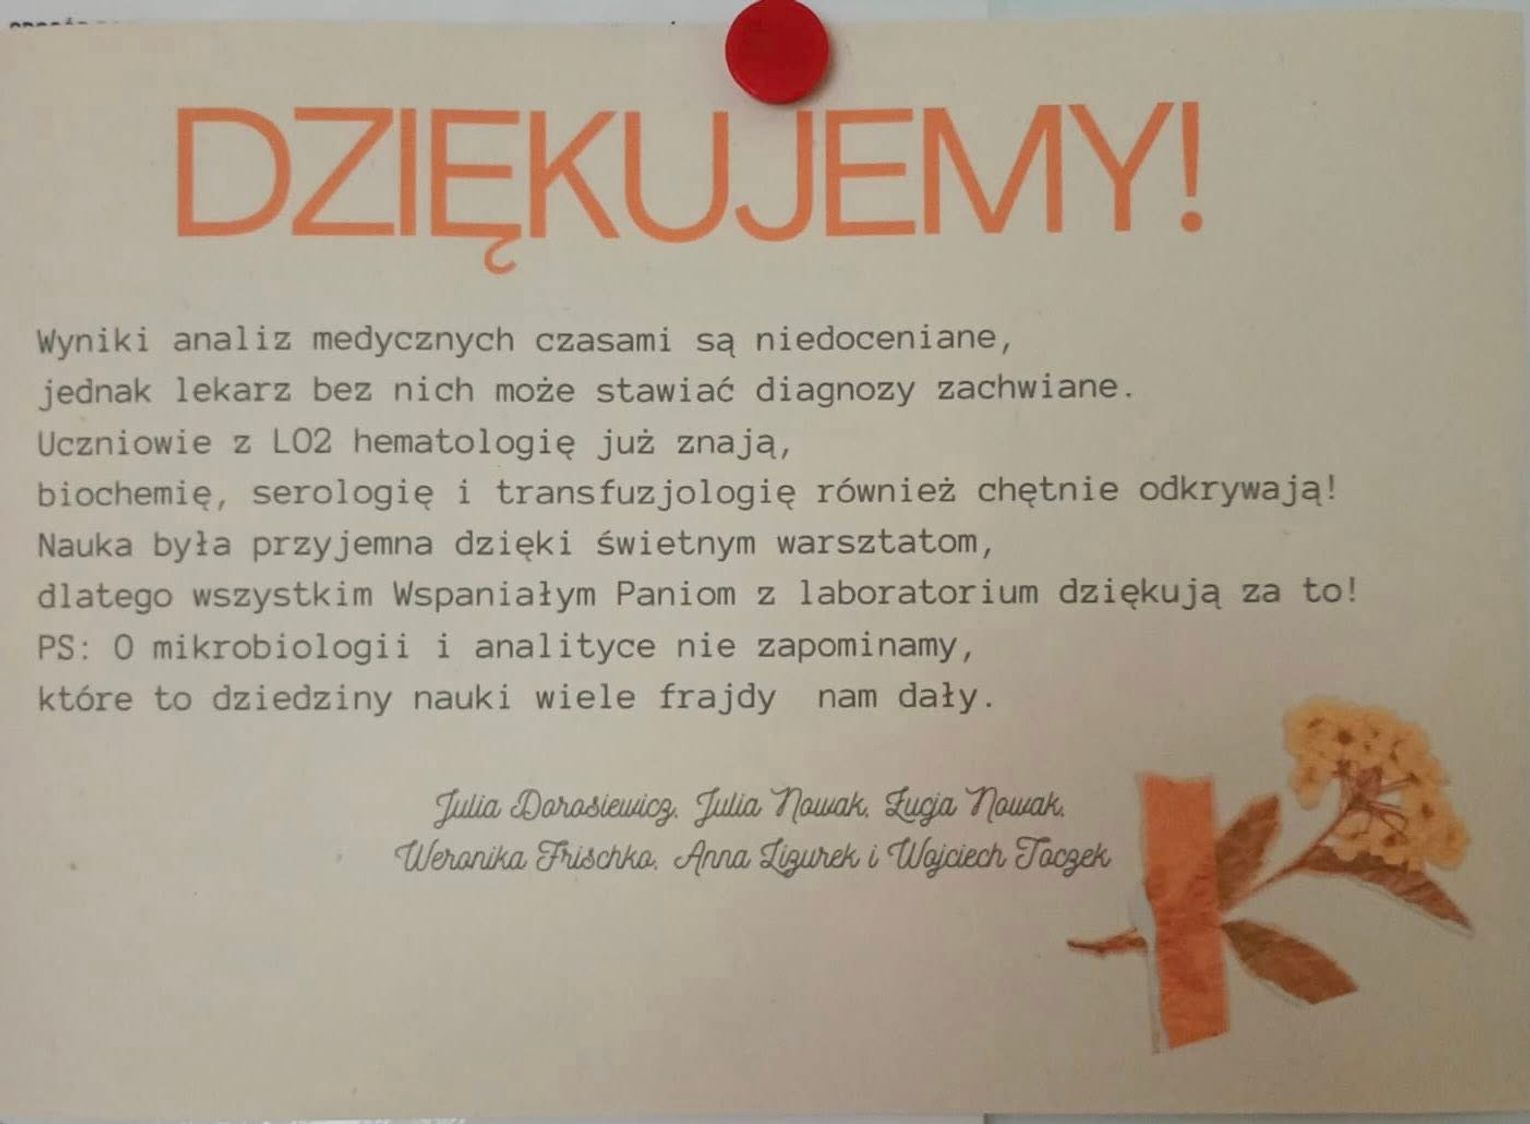 DZIĘKUJEMY!
Wyniki analiz medycznych czasami są niedoceniane,
jednak lekarz bez nich może stawiać diagnozy zachwiane.
Uczniowie z LO2 hematologię już znają,
biochemię, serologię i transfuzjologię również chętnie odkrywają!
Nauka była przyjemna dzięki świetnym warsztatom,
dlatego wszystkim Wspaniałym Paniom z laboratorium dziękują za to!
PS: O mikrobiologii i analityce nie zapominamy,
które to dziedziny nauki wiele frajdy  nam dały.
Julia Dorosiewicz, Julia Nowak, Łucja Nowak,
Weronika Frischko, Anna Lizurek i Wojciech Toczek